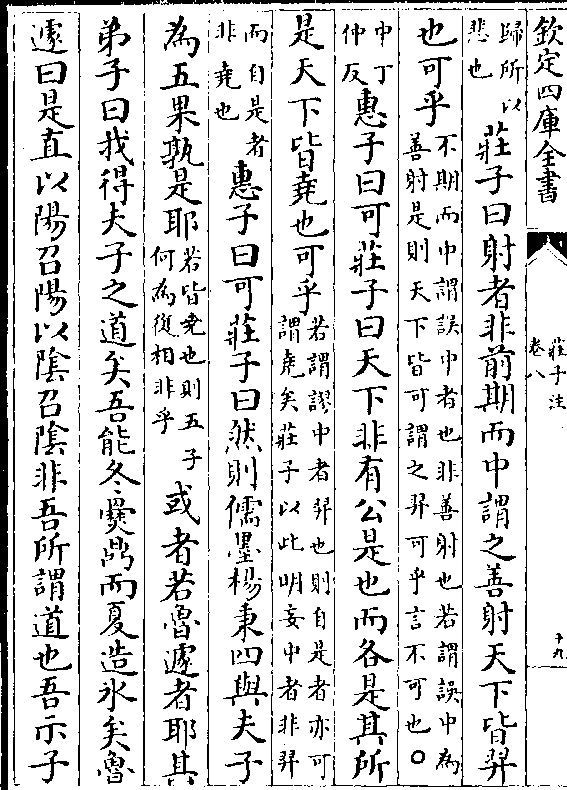 欽定四庫全書
莊子注
卷八
十九
歸所以
悲也
莊子曰射者非前期而中謂之善射天下皆羿
也可乎
不期而中謂誤中者也非善射也若謂誤中為
善射是則天下皆可謂之羿可乎言不可也○
中丁
仲反
惠子曰可莊子曰天下非有公是也而各是其所
是天下皆堯也可乎
若謂謬中者羿也則自是者亦可
謂堯矣莊子以此明妄中者非羿
而自是者
非堯也
惠子曰可莊子曰然則儒墨楊秉四與夫子
為五果孰是耶
若皆堯也則五子
何為復相非乎
或者若魯遽者耶其
弟子曰我得夫子之道矣吾能冬爨鼎而夏造氷矣魯
遽曰是直以陽召陽以陰召陰非吾所謂道也吾示子